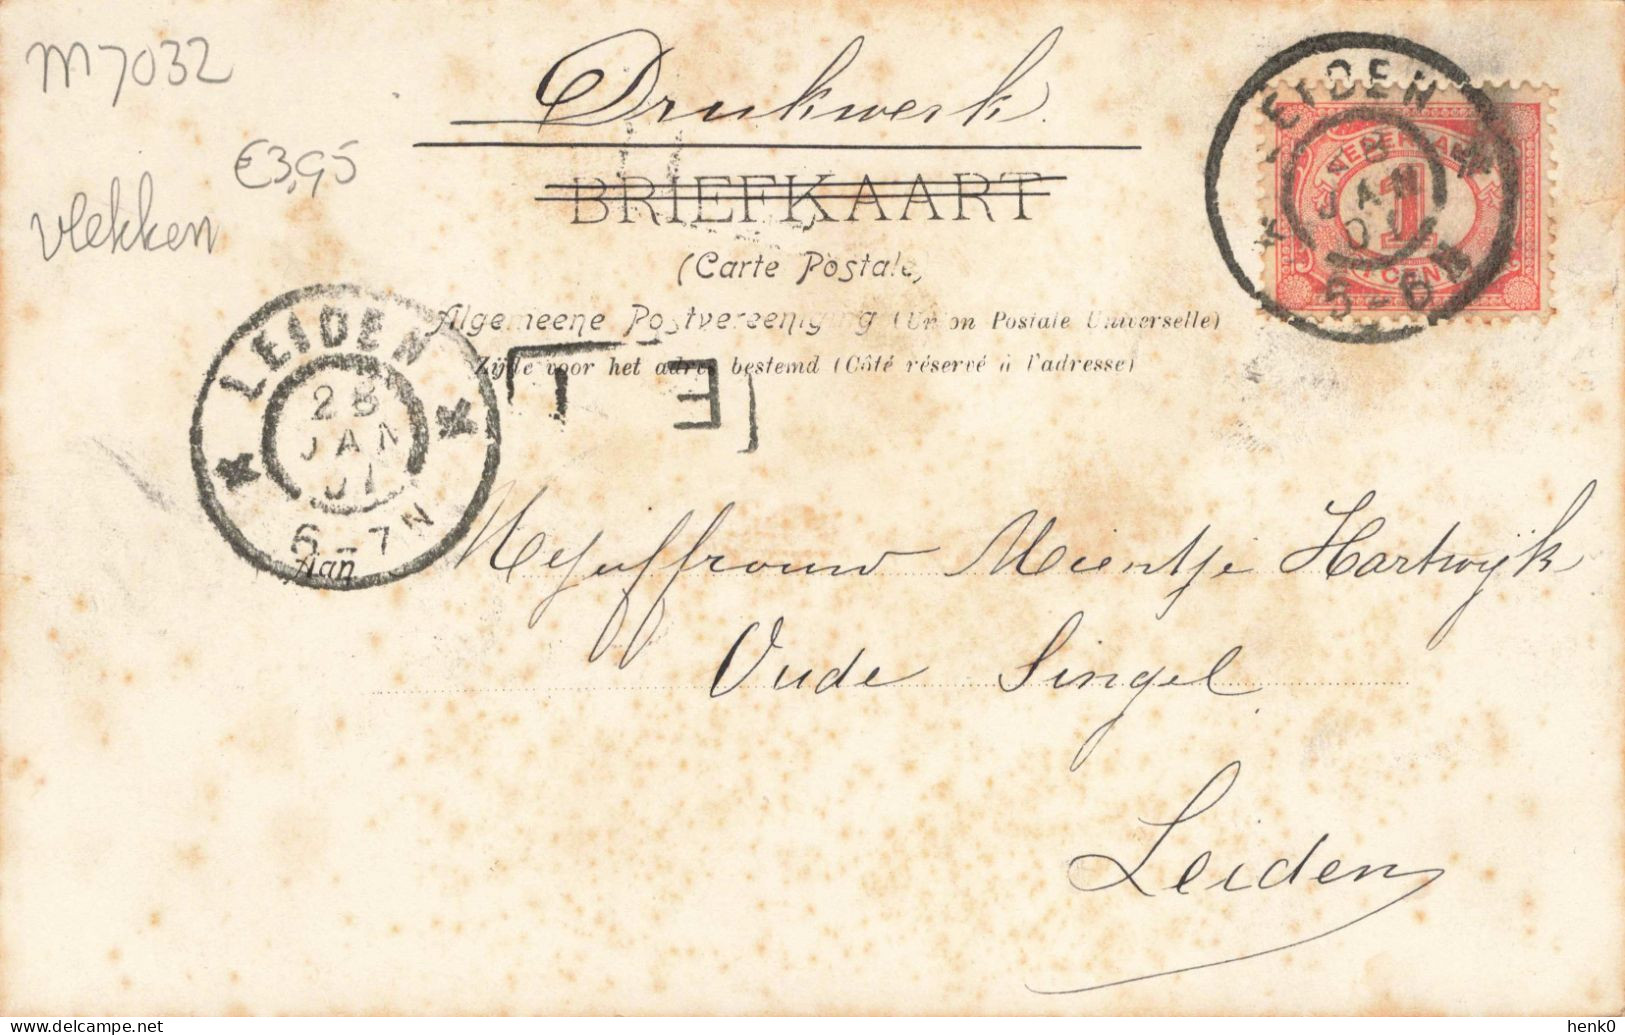 M7032
€3,95
vlekken
Drukwerk.
BRIEFKAART
(Carte Postale)
Algemeene Postvereeniging (Union Postale Universelle)
Zijde voor het adres bestemd (Côté réservé à l'adresse)
LEIDEN
JAN
5-6N
NEDERLAND
1
1 CENT
LEIDEN
28
JAN
01
6-7N
Aan
Mejuffrouw Mientje Hartwijk
Oude Singel.
Leiden
henk0